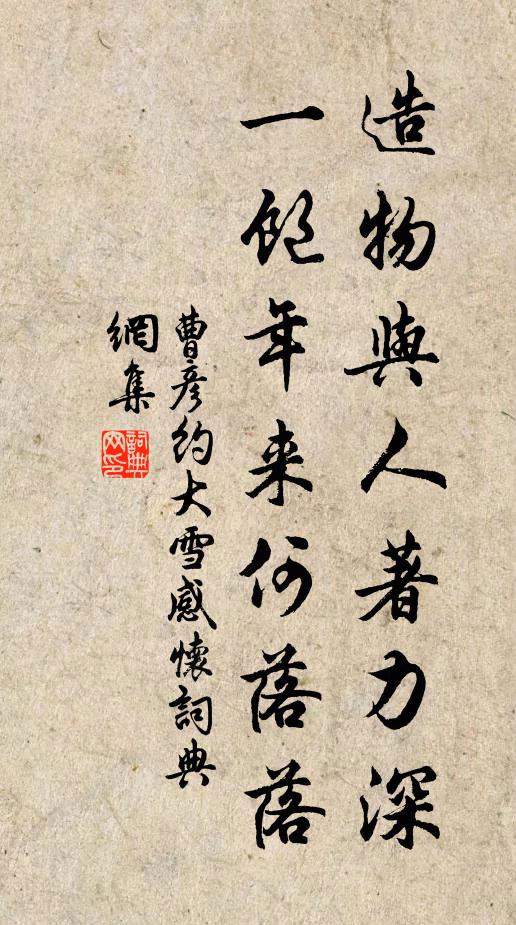 造物與人著力深
一飽年来何落落
曹彦約大雪感懷詞典
網集
詞典
网印